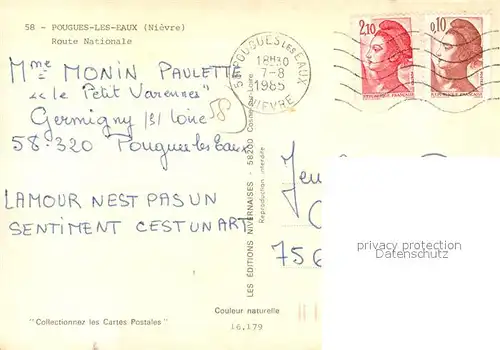 58 - POUGUES-LES-EAUX (Nièvre)
Route Nationale
Mme MONIN PAULETTE
"le Petit Varennes"
Germigny /s/ Loire
58-320 Pougues les Eaux
58
LAMOUR NEST PAS UN
SENTIMENT CEST UN ART
"Collectionnez les Cartes Postales"
58 POUGUES LES EAUX
18H30
7-8
1985
NIEVRE
2,10
REPUBLIQUE FRANÇAISE
0,10
REPUBLIQUE FRANÇAISE
LES ÉDITIONS NIVERNAISES - 58200 Cosne sur Loire
Reproduction interdite
Couleur naturelle
16.179
privacy protection
Datenschutz